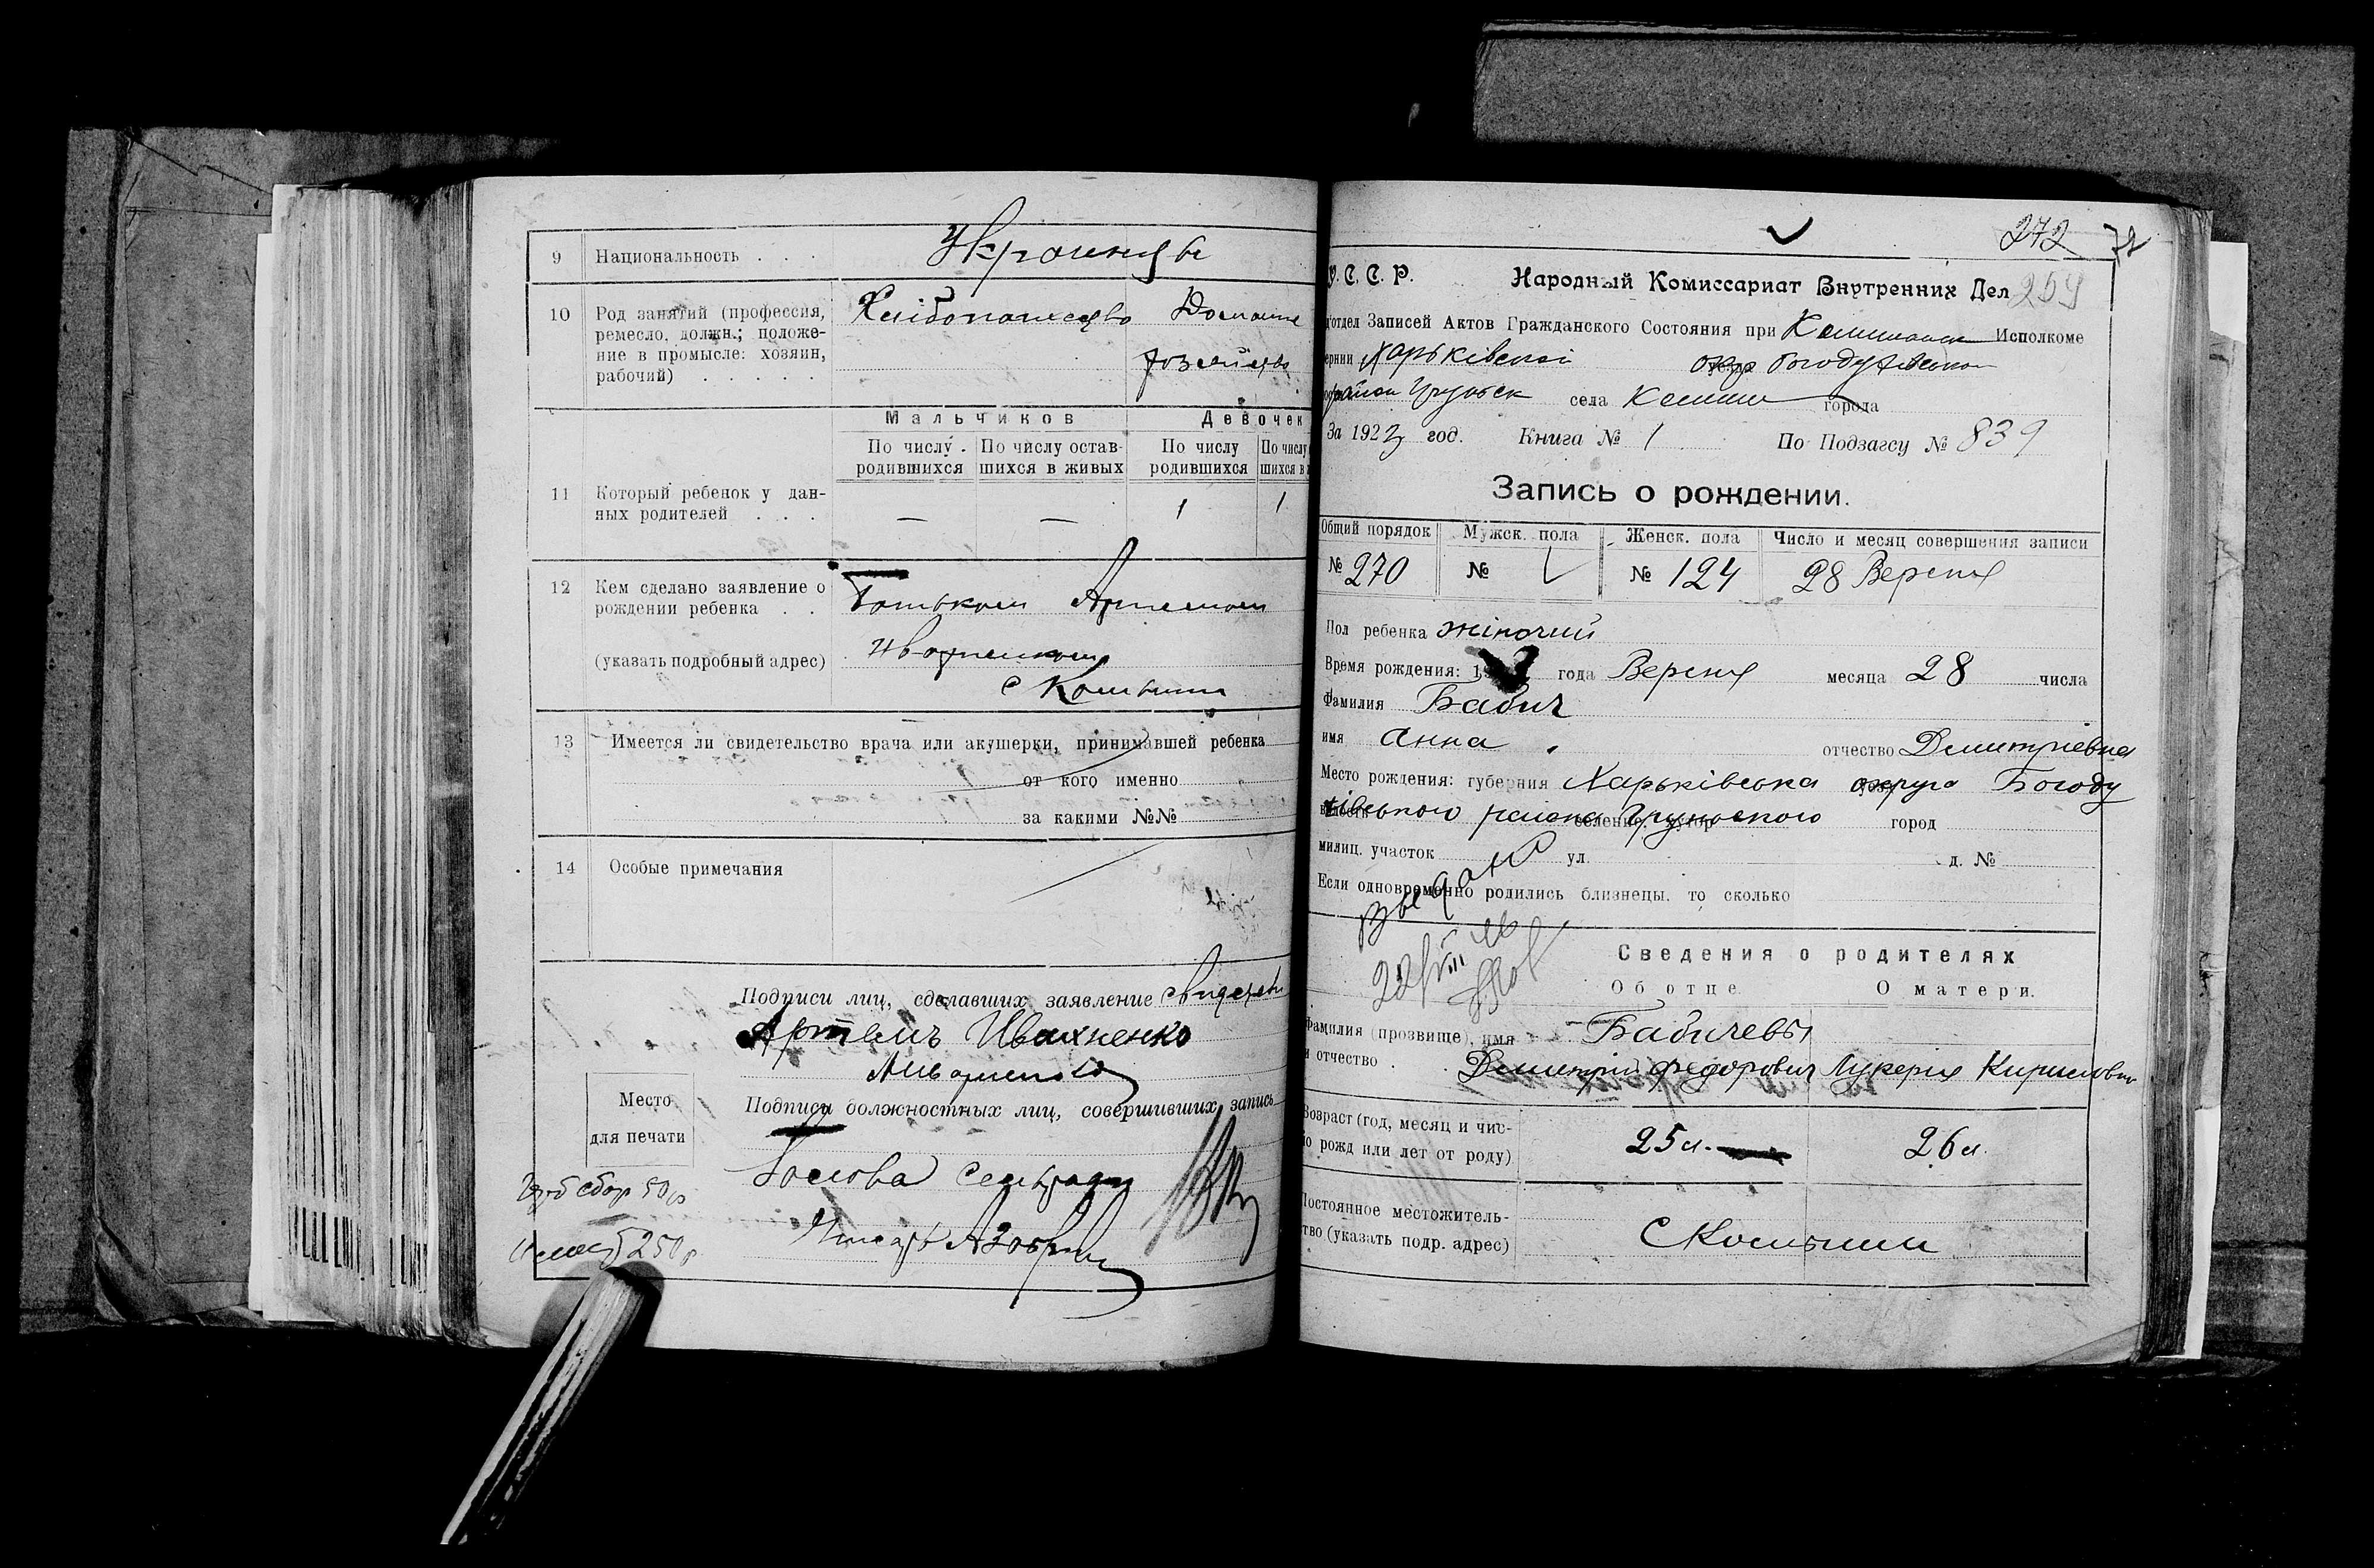 9 Национальность . . . Українці
10 Род занятий (профессия, Хлібопашество Домашне
ремесло, должн.; положе-
ние в промысле: хозяин, хозяйство
рабочий) . . . . .
Мальчиков Девочек
По числу По числу остав- По числу По числу
родившихся шихся в живых родившихся шихся в
11 Который ребенок у дан-
ных родителей . . . — — 1 1
12 Кем сделано заявление о
рождении ребенка . . Батьком Артемом
(указать подробный адрес)
с
13 Имеется ли свидетельство врача или акушерки, принимавшей ребенка
от кого именно
за какими №№
14 Особые примечания
Подписи лиц, сделавших заявление
Артемъ Ивахненко
Место
для печати
Подписи должностных лиц, совершивших запись
Голова Сельради
сбор 50р
250р
272 72
У. С. С. Р. Народный Комиссариат Внутренних Дел 259
отдел Записей Актов Гражданского Состояния при Исполкоме
ернии Харьківской окр Богодухівской
села города
За 1923 год. Книга № 1 По Подзагсу № 839
Запись о рождении.
Общий порядок Мужск. пола Женск. пола Число и месяц совершения записи
№ 270 № № 124 28 Вересня
Пол ребенка жіночий
Время рождения: 19 года Вересня месяца 28 числа
Фамилия Бабич
имя Анна отчество Дмитриевна
Место рождения: губерния Харьківська округа Богоду
хівського района селение, хутор город
милиц. участок ул. д. №
Если одновременно родились близнецы, то сколько
Выдано
22/VIII
Сведения о родителях
Об отце О матери.
Фамилия (прозвище), имя Бабичевы
и отчество . . Дмитрий Федорович Лукерия Кириловна
Возраст (год, месяц и чис-
ло рожд или лет от роду) 25 л. 26 л.
Постоянное местожитель-
тво (указать подр. адрес)